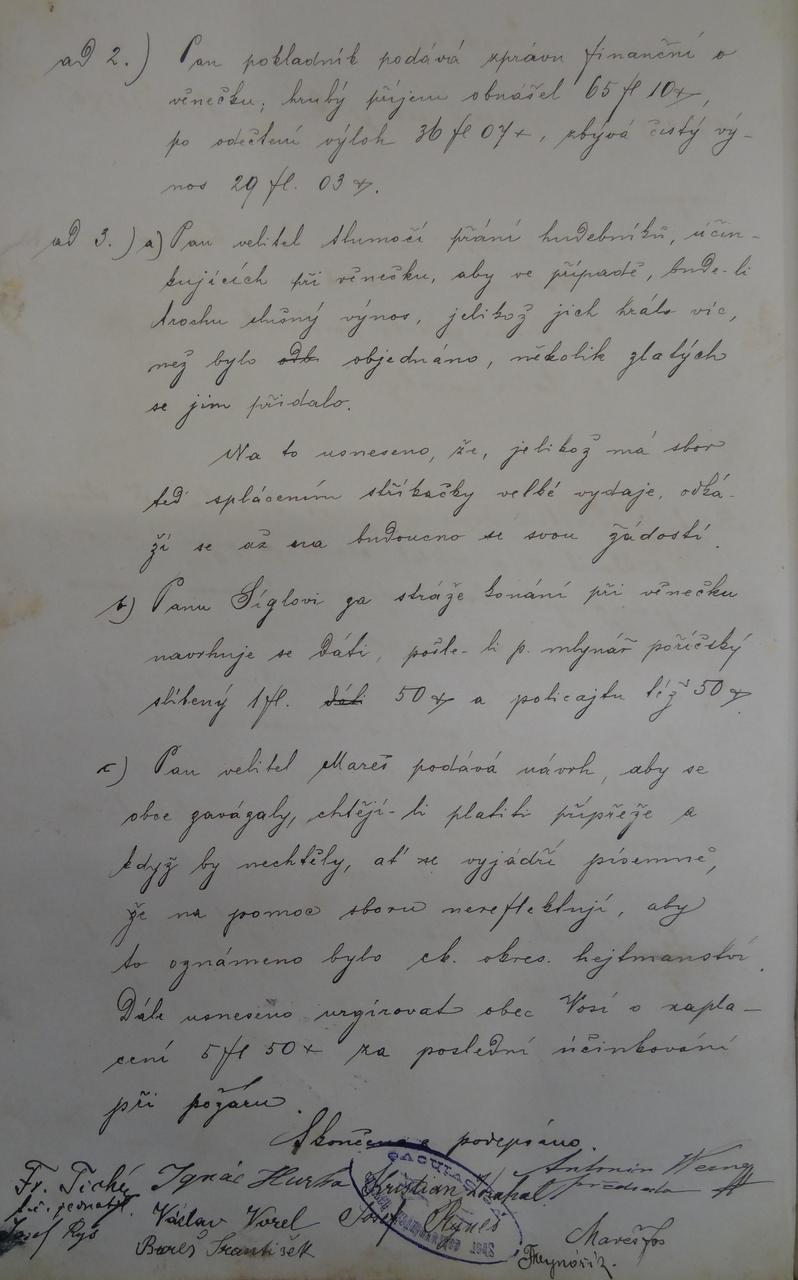 ad 2.) Pan pokladník podává zprávu finanční o
věnečku; hrubý příjem obnášel 65 fl 10 x,
po odečtení výloh 36 fl 07 x, zbývá čistý vý-
nos 29 fl. 03 x.
ad 3.) a) Pan velitel tlumočí přání hudebníků, účin-
kujících při věnečku, aby ve případě, bude-li
trochu slušný výnos, jelikož jich hrálo víc,
než bylo odb objednáno, několik zlatých
se jim přidalo.
Na to usneseno, že, jelikož má sbor
teď splácením stříkačky velké vydaje, odká-
ží se až na budoucno se svou žádostí.
b) Panu Síglovi za stráže konání při věnečku
navrhuje se dáti, pošle-li p. mlynář poříčský
slíbený 1 fl. dáti 50 x a policajtu též 50 x.
c) Pan velitel Mareš podává návrh, aby se
obce zavázaly, chtějí-li platiti přípřeže a
když by nechtěly, ať se vyjádří písemně,
že na pomoc sboru nereflektují, aby
to oznámeno bylo ck. okres. hejtmanství.
Dále usneseno urgírovat obec Vosí o zapla-
cení 5 fl 50 x za poslední účinkování
při požáru.
Skončeno a podepsáno.
Fr. Tichý Ignác Hurka Kristian Antonín
t.č. jednatel předseda
Josef Rys Václav Vorel Josef Mareš Jos
Bureš František